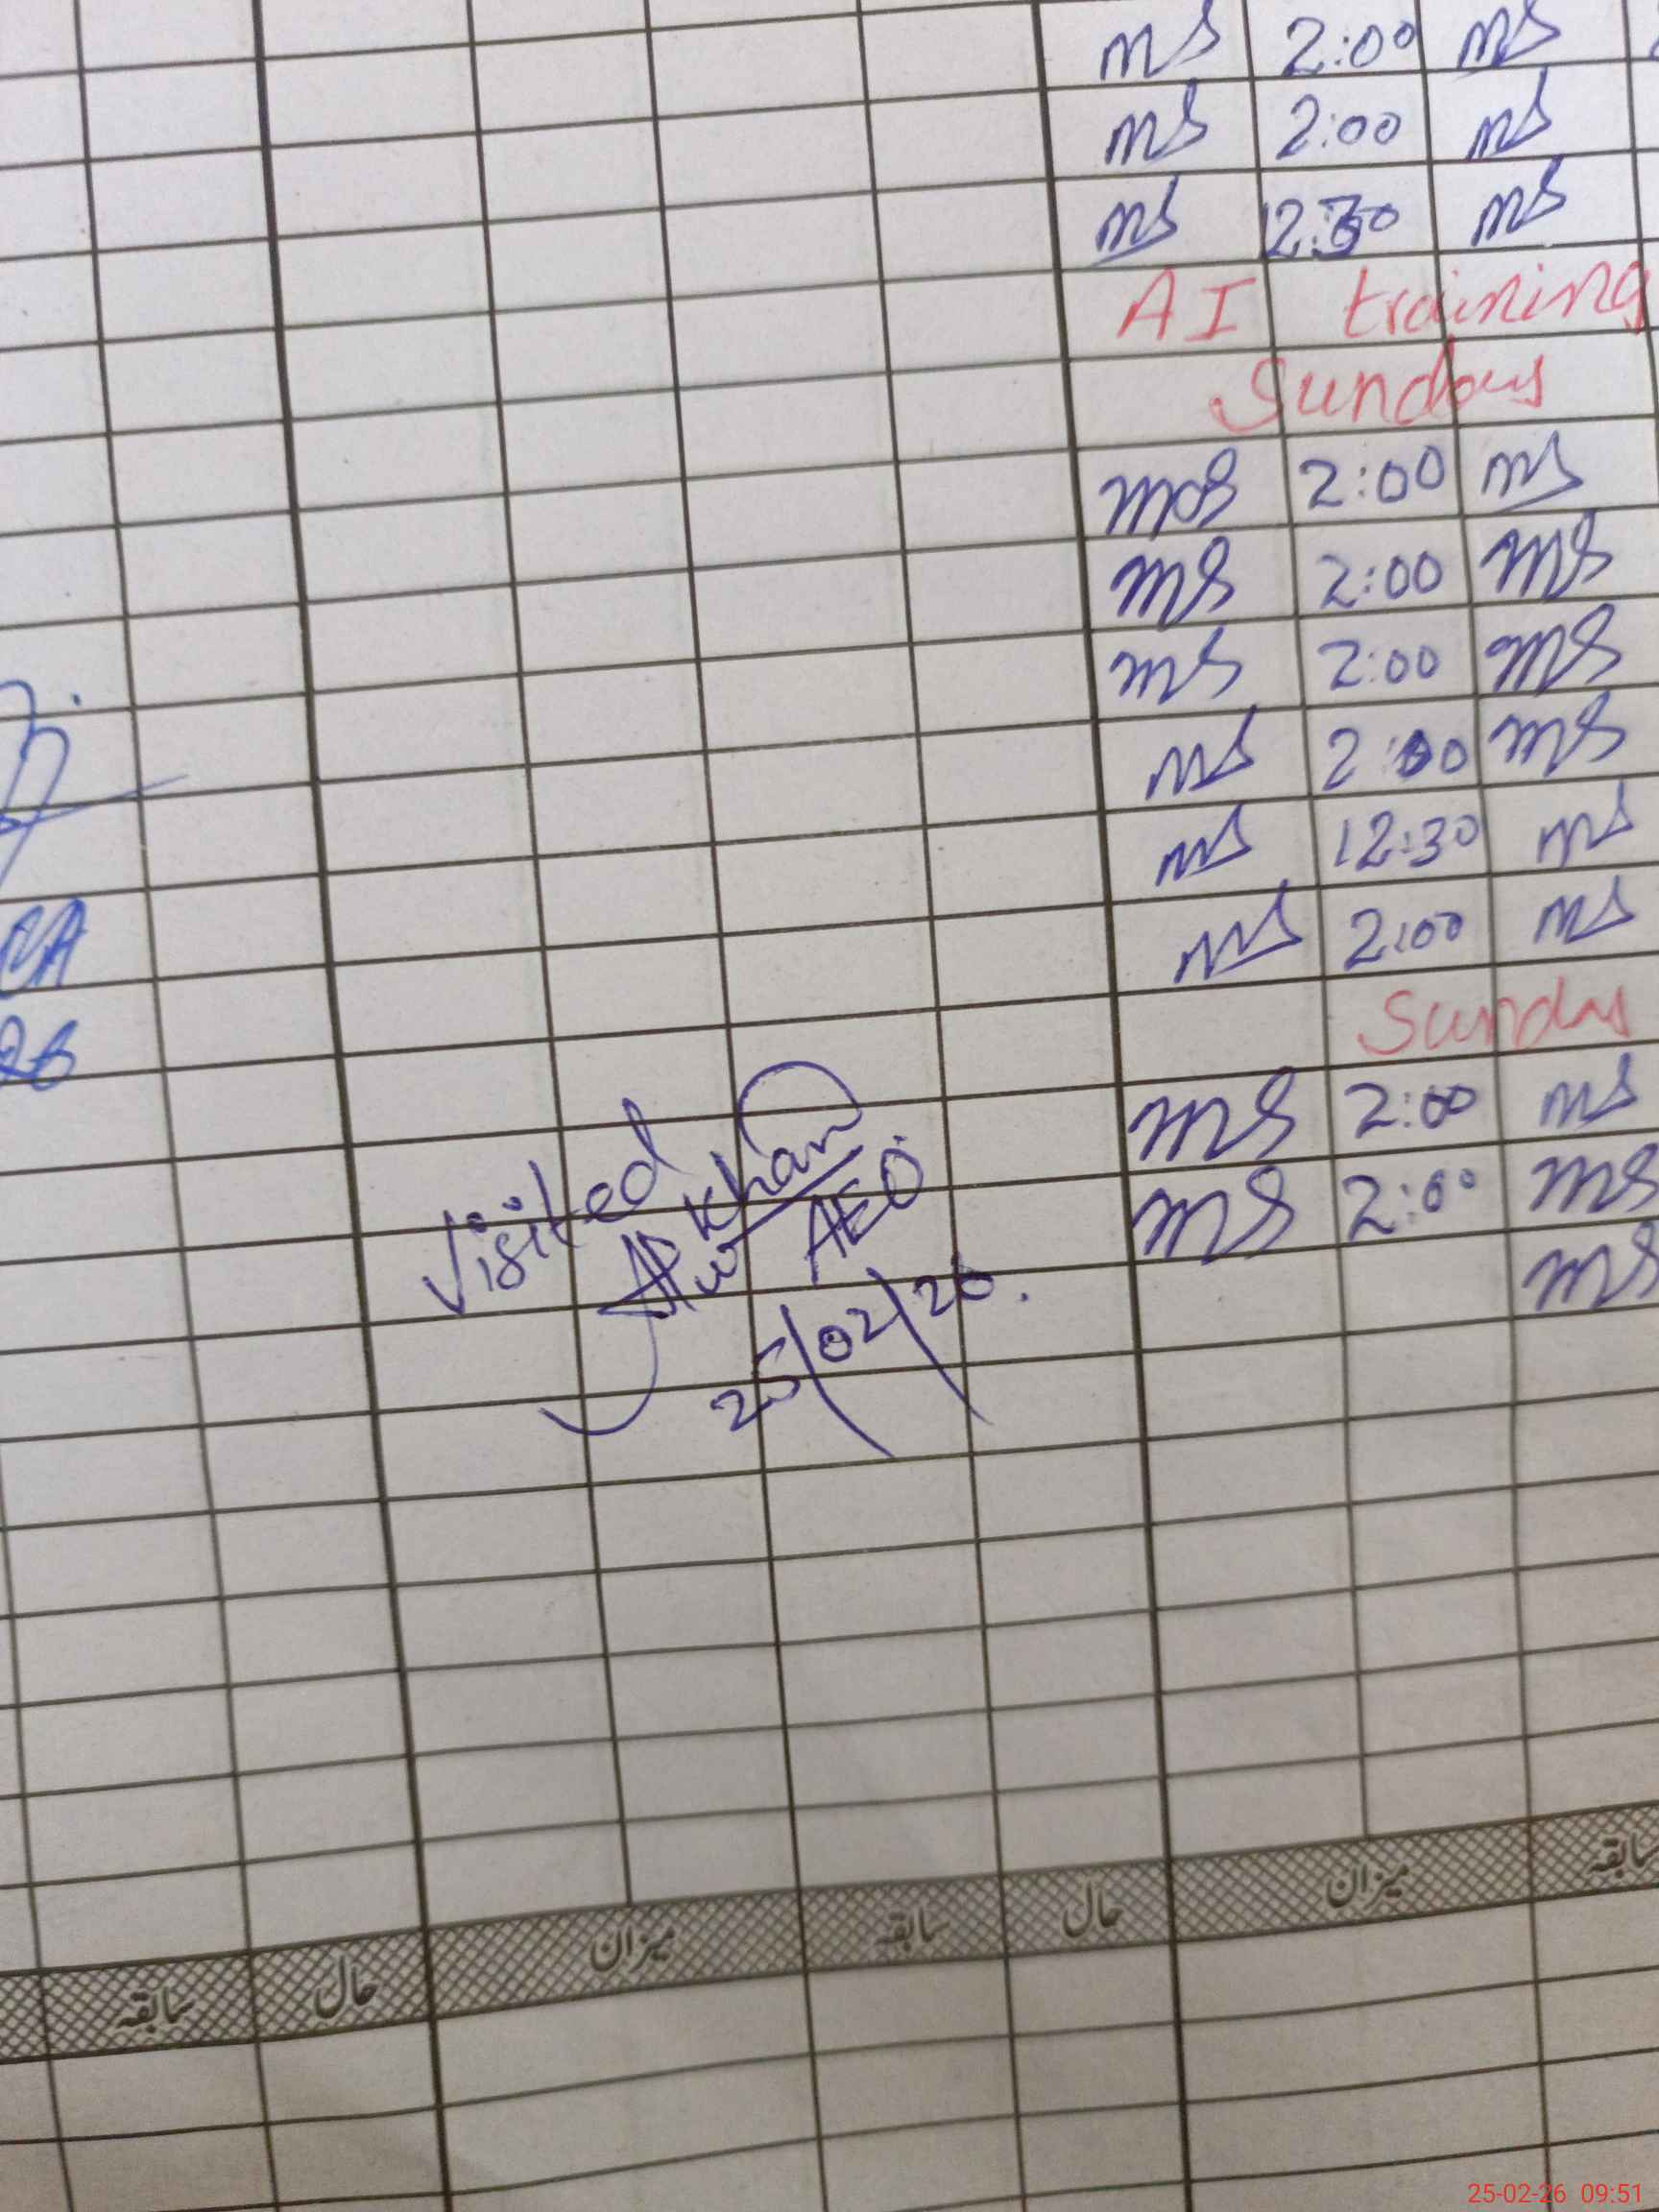 ms 2:00 ms
ms 2:00 ms
ms 12:30 ms
AI training
Sunday
ms 2:00 ms
ms 2:00 ms
ms 2:00 ms
ms 2:00 ms
ms 12:30 ms
ms 2:00 ms
Sunday
ms 2:00 ms
ms 2:00 ms
ms
26
Visited
Khan
AEO
25/02/26.
سابقہ حال میزان سابقہ حال میزان سابقہ
25-02-26 09:51